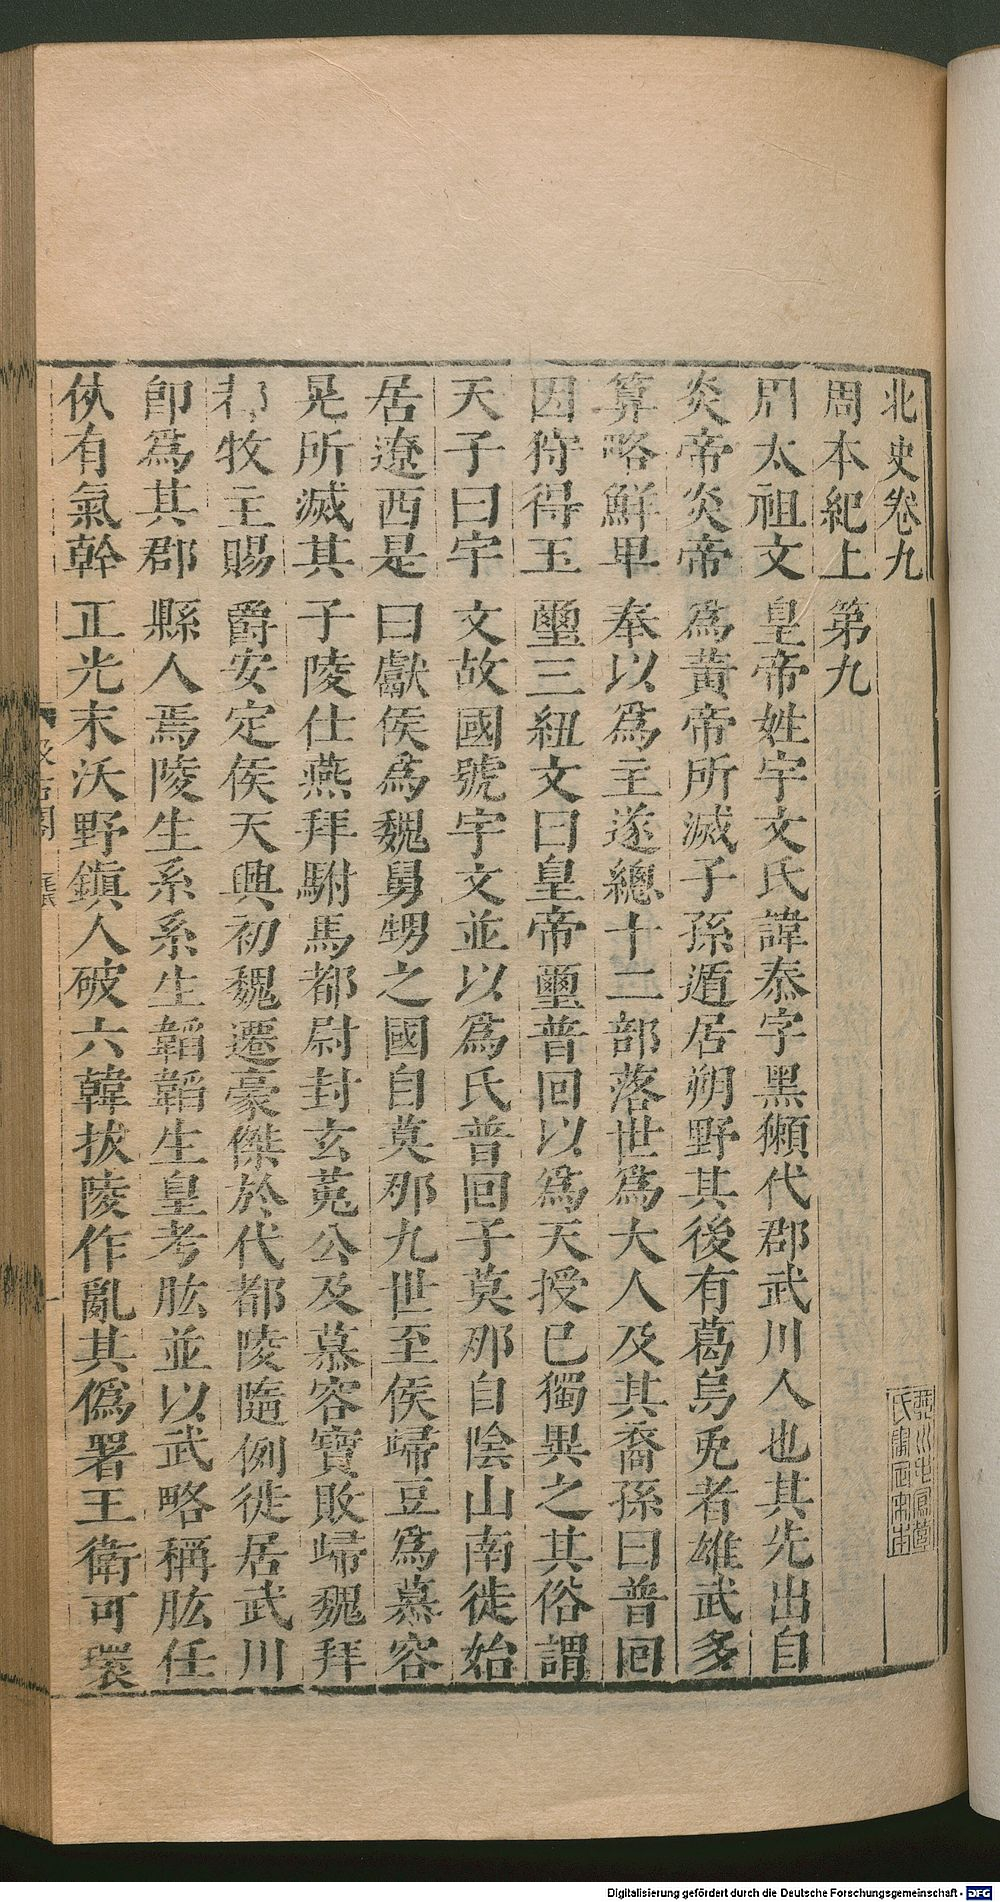 北史卷九
周本紀上第九
周太祖文皇帝姓宇文氏諱泰字黑獺代郡武川人也其先出自
炎帝炎帝爲黃帝所滅子孫遁居朔野其後有葛烏兎者雄武多
算略鮮卑奉以爲主遂總十二部落世爲大人及其裔孫曰普回
因狩得玉璽三紐文曰皇帝璽普回以爲天授已獨異之其俗謂
天子曰宇文故國號宇文並以爲氏普回子莫那自陰山南徙始
居遼西是曰獻侯爲魏舅甥之國自莫那九世至侯歸豆爲慕容
晃所滅其子陵仕燕拜駙馬都尉封玄菟公及慕容寶敗歸魏拜
都牧主賜爵安定侯天興初魏遷豪傑於代都陵隨例徙居武川
卽爲其郡縣人焉陵生系系生韜韜生皇考肱並以武略稱肱任
俠有氣幹正光末沃野鎭人破六韓拔陵作亂其僞署王衛可瓌
Digitalisierung gefördert durch die Deutsche Forschungsgemeinschaft - DFG